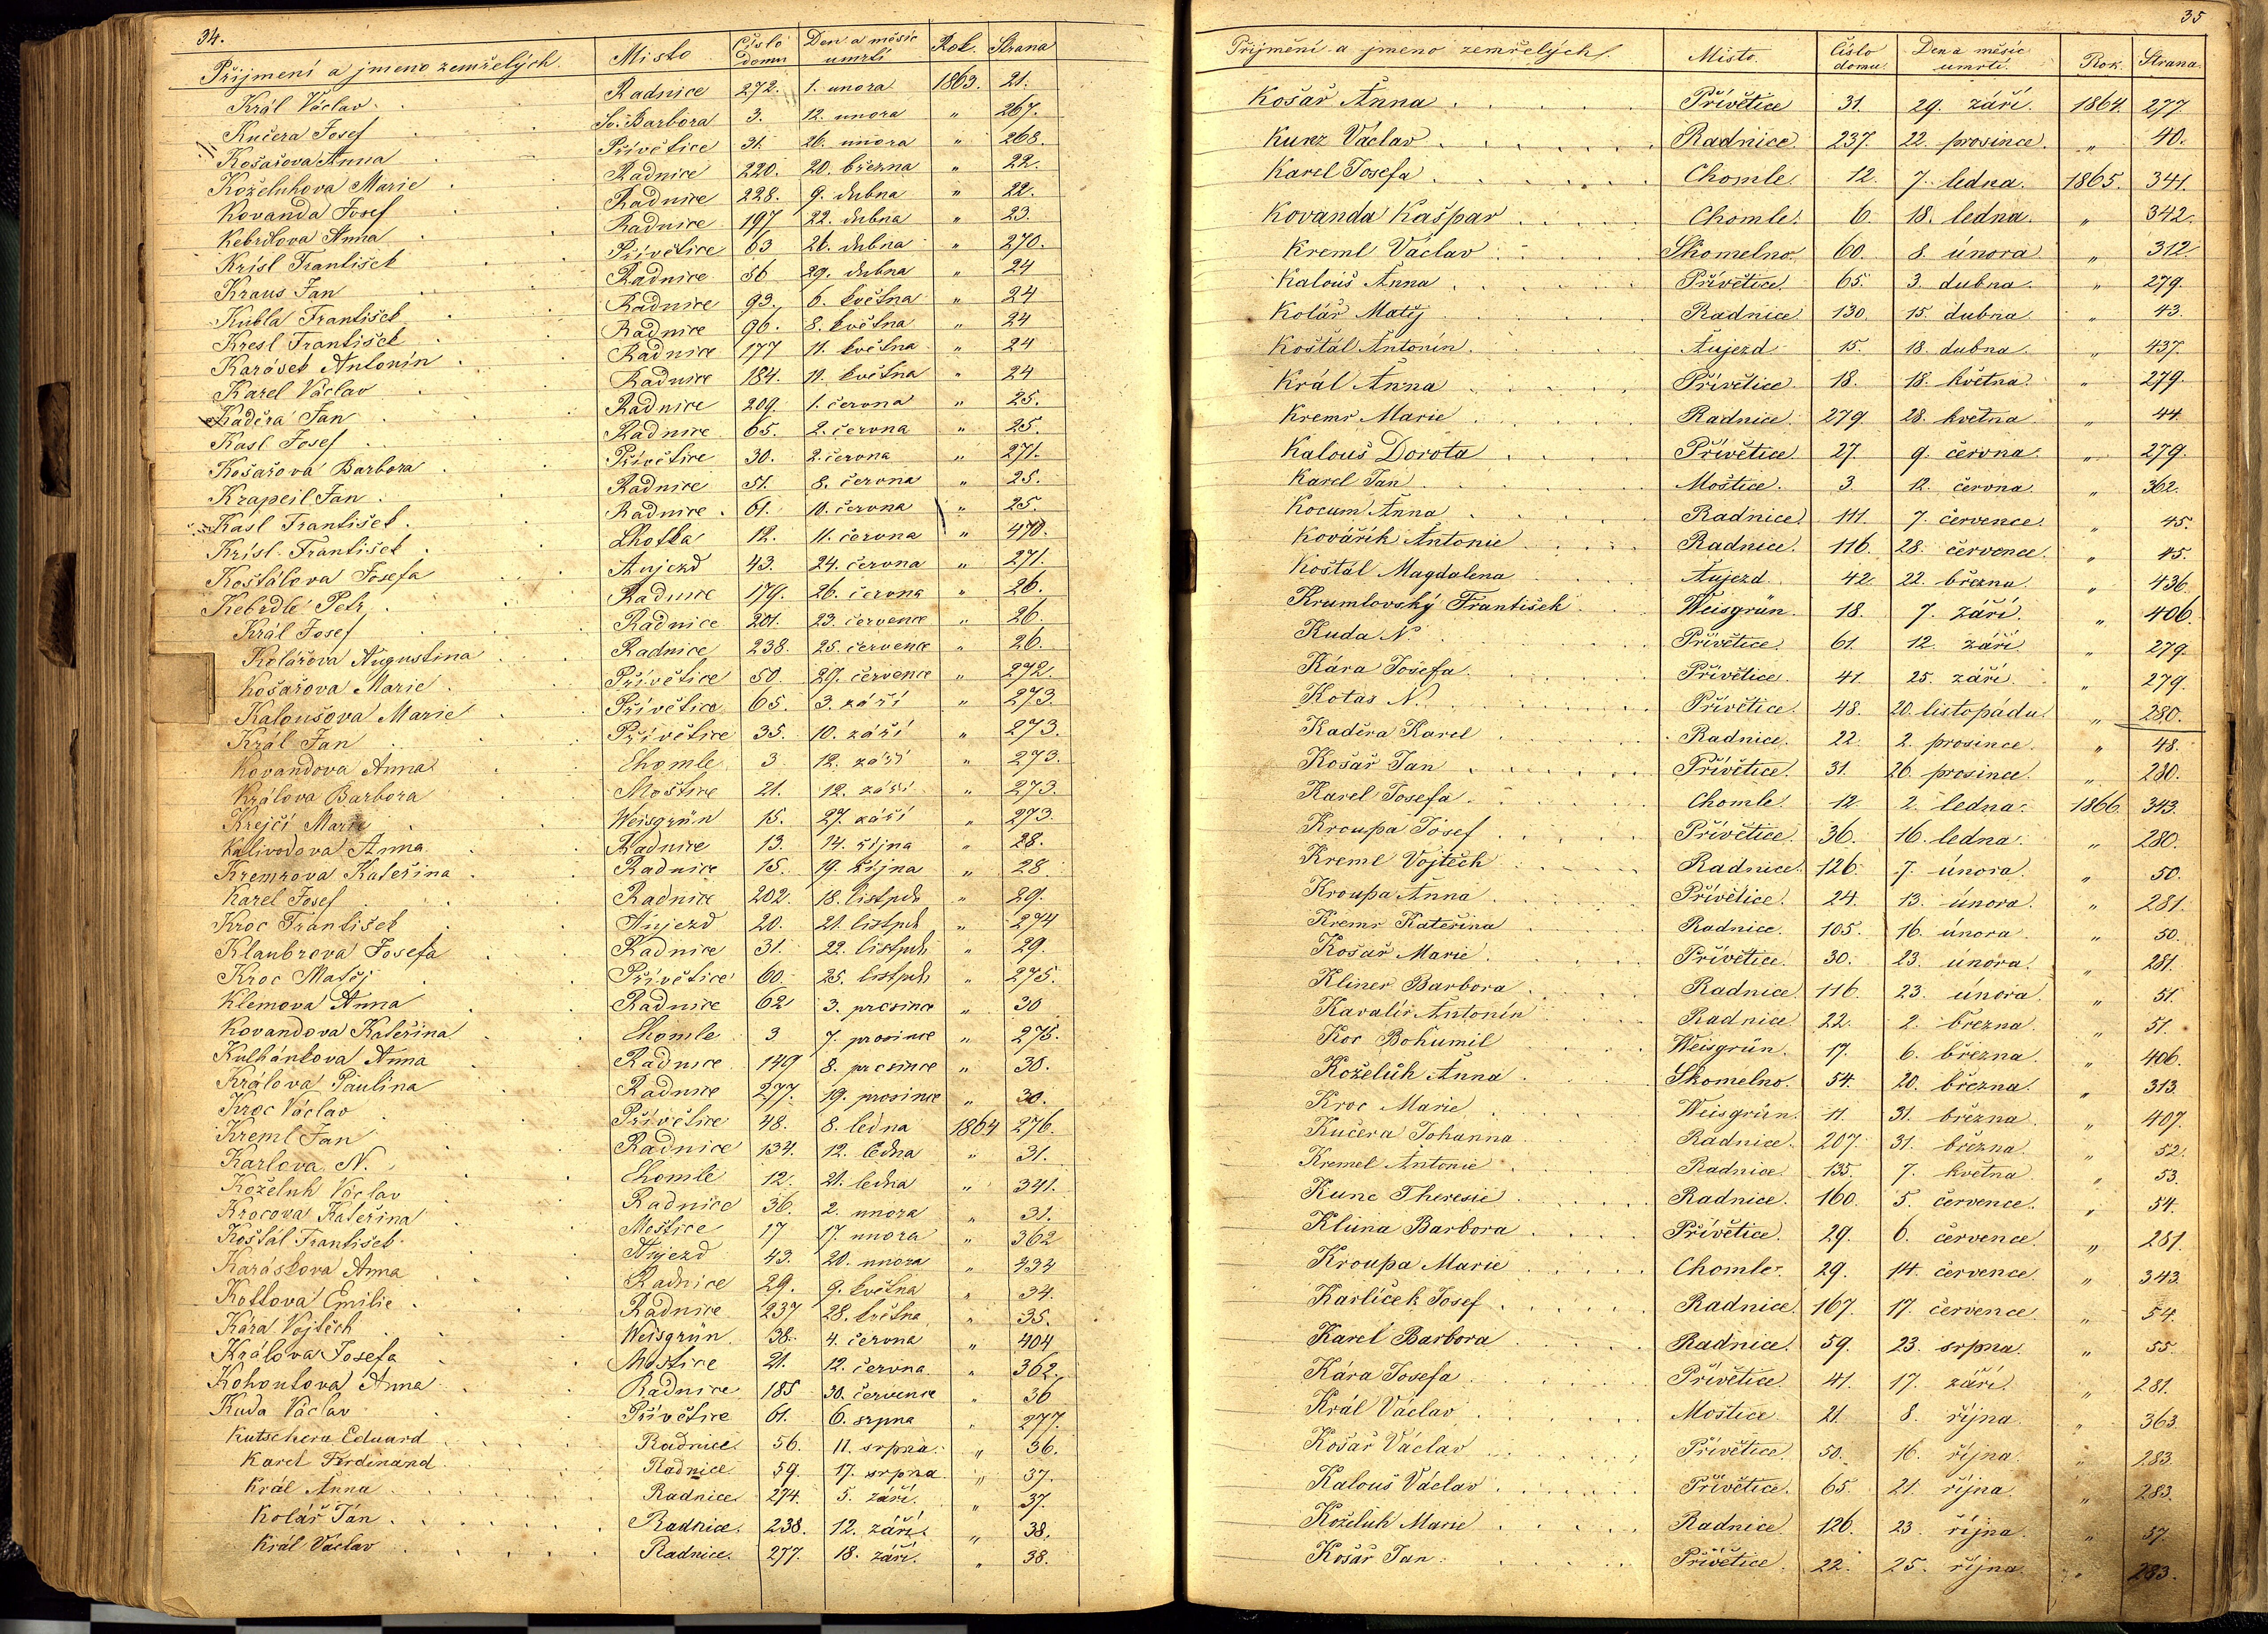 34.
Přijmení a jmeno zemřelých. Misto Číslo domu Den a měsíc umrtí Rok. Strana
Král Václav Radnice 272. 1. unora 1863. 21.
Kučera Josef Sv. Barbora 3. 12. unora „ 267.
Košařova Anna Přívětice 31. 26. unora „ 268.
Koželuhova Marie Radnice 220. 20. března „ 22.
Kovanda Josef Radnice 228. 9. dubna „ 22.
Kebrdlova Anna Radnice 197 22. dubna „ 23.
Krísl František Přívětice 63 26. dubna „ 270.
Kraus Jan Radnice 56 29. dubna „ 24
Kubla František Radnice 93. 6. května „ 24
Kresl František Radnice 96. 8. května „ 24
Karásek Antonín Radnice 177 11. května „ 24
Karel Václav Radnice 184. 11. května „ 24
Kaděra Jan Radnice 209. 1. června „ 25.
Kasl Josef Radnice 65. 2. června „ 25.
Košařová Barbora Přívětice 30. 2. června „ 271.
Krapeil Jan Radnice 51. 8. června „ 25.
Kasl František Radnice 61. 10. června „ 25.
Krísl František Lhotka 12. 11. června „ 470.
Koštálova Josefa Aujezd 43. 24. června „ 271.
Kebrdle Petr Radnice 179. 26. června „ 26.
Král Josef Radnice 201. 23. července „ 26.
Kolářova Augustina Radnice 238. 25. července „ 26.
Košařova Marie Přívětice 50. 29. července „ 272.
Kaloušova Marie Přívětice 65. 3. září „ 273.
Král Jan Přívětice 35. 10. září „ 273.
Kovandova Anna Chomle 3 12. září „ 273.
Králova Barbora Moštice 21. 12. září „ 273.
Krejčí Marie Weisgrün 15. 27. září „ 273.
Kalivodova Anna Radnice 13. 14. října „ 28.
Kremrova Kateřina Radnice 15. 19. října „ 28
Karel Josef Radnice 202. 18. listpdu „ 29.
Kroc František Aujezd 20. 21. listpdu „ 274
Klaubrova Josefa Radnice 31. 22. listpdu „ 29.
Kroc Matěj Přívětice 60. 25. listpdu „ 275.
Klemova Anna Radnice 62 3. prosince „ 30
Kovandova Kateřina Chomle 3 7. prosince „ 275.
Kulhánkova Anna Radnice 149 8. prosince „ 30.
Králova Paulina Radnice 277. 19. prosince „ 30.
Kroc Václav Přívětice 48. 8. ledna 1864 276.
Kreml Jan Radnice 134. 12. ledna „ 31.
Karlova N. Chomle 12. 21. ledna „ 341.
Koželuh Václav Radnice 36. 2. unora „ 31.
Krocova Kateřina Moštice 17 17. unora „ 362
Koštál František Aujezd 43. 20. unora „ 434
Karaskova Anna Radnice 29. 9. května „ 34.
Kottova Emilie Radnice 237 28. května „ 35.
Kára Vojtěch Weisgrün 38. 4. června „ 404
Králova Josefa Moštice 21. 12. června „ 362.
Kohoutova Anna Radnice 185 30. července „ 36
Kuda Václav Přívětice 61. 6. srpna „ 277.
Kutschera Eduard Radnice 56. 11. srpna „ 36.
Karel Ferdinand Radnice 59. 17. srpna „ 37.
Král Anna Radnice 274. 5. září „ 37.
Kolář Jan Radnice. 238. 12. září. „ 38.
Král Václav Radnice. 277. 18. září. „ 38.
35
Přijmení a jmeno zemřelých. Misto. Číslo domu. Den a měsíc umrtí. Rok. Strana.
Košař Anna Přívětice 31. 29. září. 1864. 277
Kunz Václav Radnice 237. 22. prosince. „ 40.
Karel Josefa Chomle. 12. 7. ledna. 1865. 341.
Kovanda Kašpar Chomle. 6. 18. ledna. „ 342.
Kreml Václav Skomelno. 60. 8. února „ 312.
Kalouš Anna Přívětice. 65. 3. dubna. „ 279.
Kolář Matěj Radnice 130. 15. dubna „ 43.
Koštál Antonín Aujezd 15. 18. dubna. „ 437.
Král Anna Přívětice. 18. 18. května. „ 279.
Kremr Marie Radnice. 279. 28. května „ 44.
Kalouš Dorota Přívětice. 27. 9. června. „ 279.
Karel Jan Moštice. 3. 12. června. „ 362.
Kocum Anna Radnice. 111. 7. července „ 45.
Kovářík Antonie Radnice. 116. 28. července. „ 45.
Koštál Magdalena Aujezd 42. 22. března. „ 436.
Krumlovský František Weisgrün. 18. 7. září. „ 406.
Kuda N. Přívětice. 61. 12. září „ 279.
Kára Josefa Přívětice. 41. 25. září. „ 279.
Kotas N. Přívětice. 48. 20. listopadu. „ 280.
Kaděra Karel Radnice. 22. 2. prosince. „ 48.
Košař Jan Přívětice. 31. 26. prosince. „ 280.
Karel Josefa Chomle. 12. 2. ledna. 1866. 343.
Kroupa Josef Přívětice. 36. 16. ledna. „ 280.
Kreml Vojtěch Radnice. 126. 7. února. „ 50.
Kroupa Anna Přívětice. 24. 13. února. „ 281.
Kremr Kateřina Radnice. 105. 16. února „ 50.
Košař Marie Přívětice. 30. 23. února. „ 281.
Kliner Barbora Radnice. 116. 23. února „ 51.
Kavalír Antonín Radnice 22. 2. března. „ 51.
Koc Bohumil Weisgrün. 17. 6. března. „ 406.
Koželuh Anna Skomelno. 54. 20. března. „ 313.
Kroc Marie Weisgrün. 11. 31. března. „ 407.
Kučera Johanna Radnice. 207. 31. března „ 52.
Kremel Antonie Radnice 135. 7. května „ 53.
Kunc Theresie Radnice. 160. 5. července. „ 54.
Kluna Barbora Přívětice. 29. 6. července „ 281.
Kroupa Marie Chomle. 29. 14. července. „ 343.
Karlíček Josef Radnice. 167. 17. července „ 54.
Karel Barbora Radnice. 59. 23. srpna. „ 55.
Kára Josefa Přívětice 41. 17. září. „ 281.
Král Václav Moštice. 21. 8. října. „ 363.
Košař Václav Přívětice. 50. 16. října. „ 283.
Kalouš Václav Přívětice. 65. 21. října. „ 283.
Koželuh Marie Radnice 126. 23. října. „ 57.
Košař Jan Přívětice. 22. 25. října. „ 283.